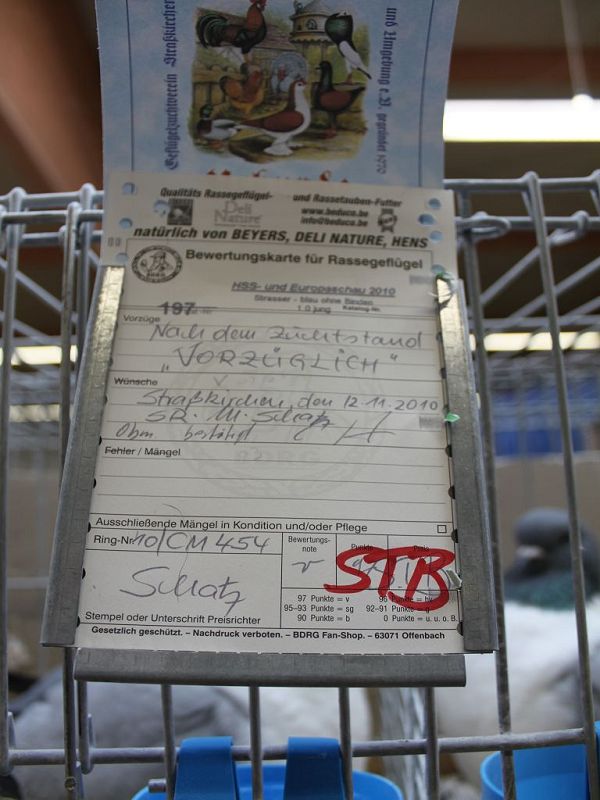 Geflügelzuchtverein Straßkirchen
und Umgebung e.V. gegründet 1970
Qualitäts Rassegeflügel- und Rassetauben-Futter
Deli Nature
www.beduco.be
info@beduco.be
natürlich von BEYERS, DELI NATURE, HENS
Bewertungskarte für Rassegeflügel
HSS- und Europaschau 2010
Strasser - blau ohne Binden
197 1.0 jung Katalog-Nr.
Vorzüge
Nach dem Zuchtstand
"VORZÜGLICH"
Wünsche
Straßkirchen, den 12.11.2010
SR. M. Schatz
Obm bestätigt
Fehler / Mängel
Ausschließende Mängel in Kondition und/oder Pflege
Ring-Nr. 10/CM 454
Bewertungs-
note
Punkte
Preis
v 97
STB
Schatz
97 Punkte = v 96 Punkte = hv
95–93 Punkte = sg 92–91 Punkte = g
90 Punkte = b 0 Punkte = u. u. o. B.
Stempel oder Unterschrift Preisrichter
Gesetzlich geschützt. – Nachdruck verboten. – BDRG Fan-Shop. – 63071 Offenbach